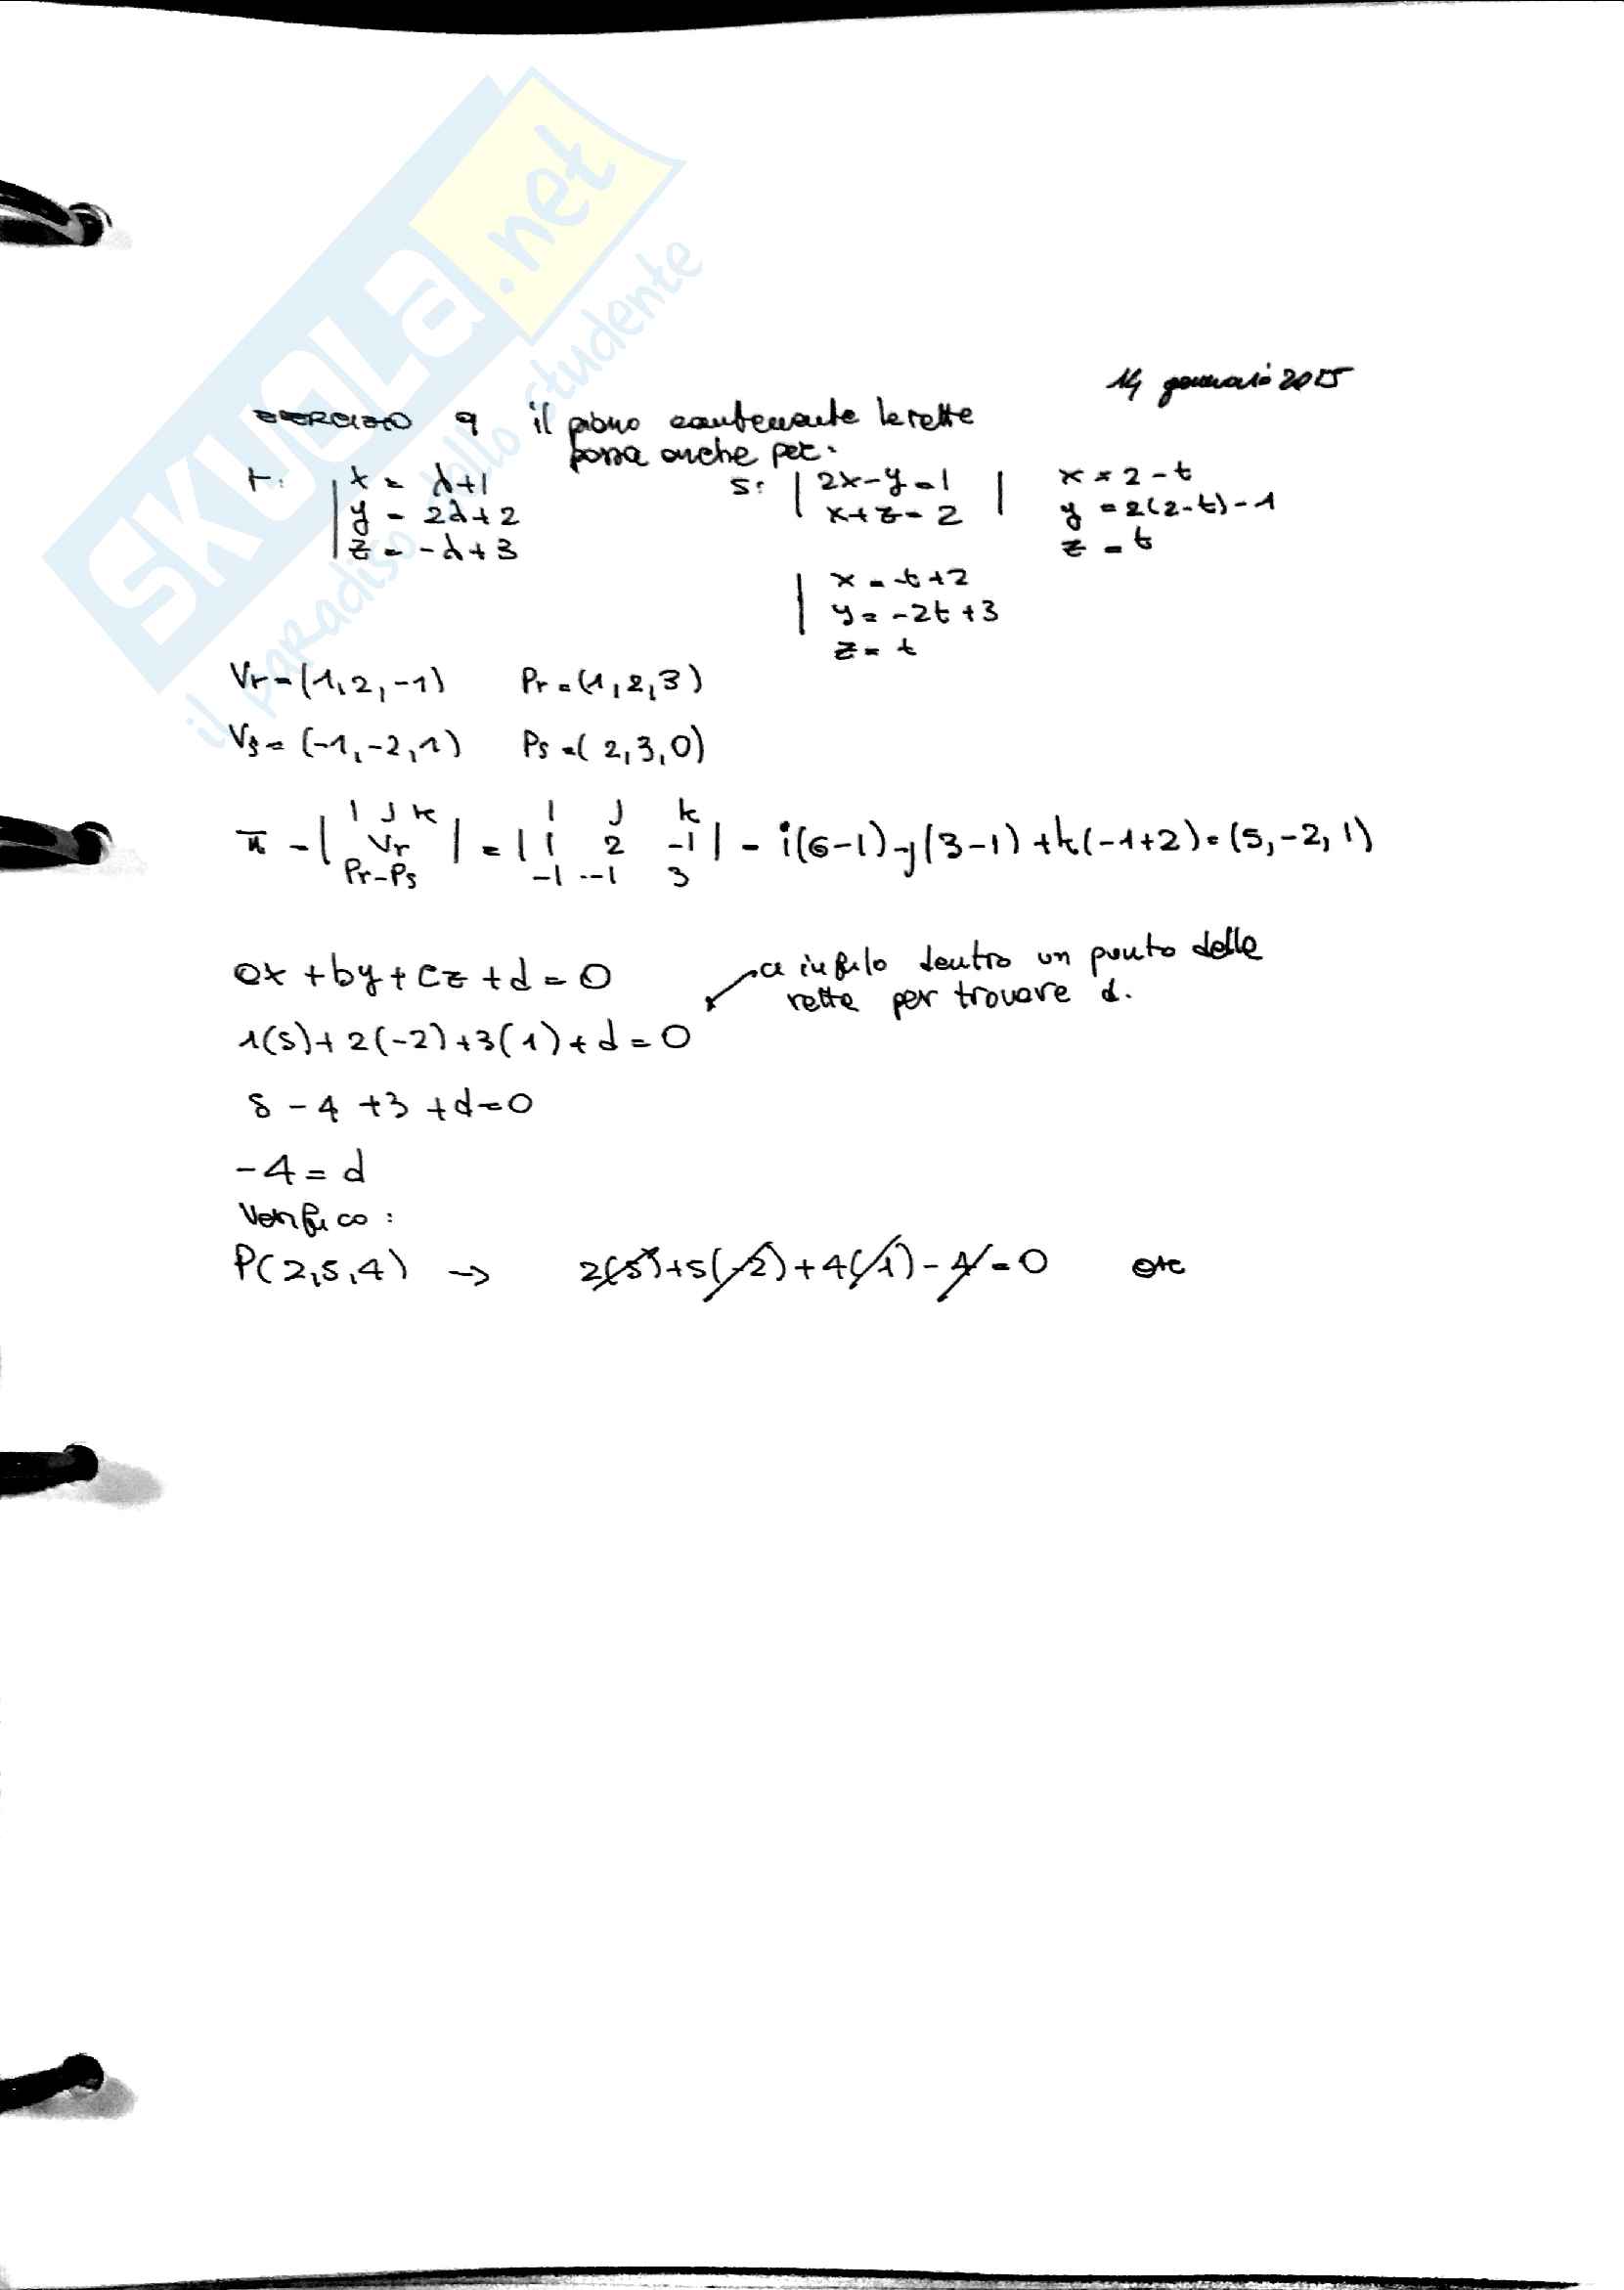 SKUOLA.net
il paradiso dello studente
14 gennaio 2015
ESERCIZIO 9 il piano contenente le rette
passa anche per:
r: | x = λ+1
y = 2λ+2
z = -λ+3
s: | 2x-y=1
x+z=2
| x = 2-t
y = 2(2-t)-1
z = t
| x = -t+2
y = -2t+3
z = t
Vr=(1,2,-1) Pr=(1,2,3)
Vs=(-1,-2,1) Ps=(2,3,0)
π = | i j k | = | i j k | = i(6-1)-j(3-1)+k(-1+2)=(5,-2,1)
Vr 1 2 -1
Pr-Ps -1 -1 3
ax+by+cz+d=0
ci infilo dentro un punto delle
rette per trovare d.
1(5)+2(-2)+3(1)+d=0
5-4+3+d=0
-4=d
Verifico:
P(2,5,4) → 2(5)+5(-2)+4(1)-4=0 ok